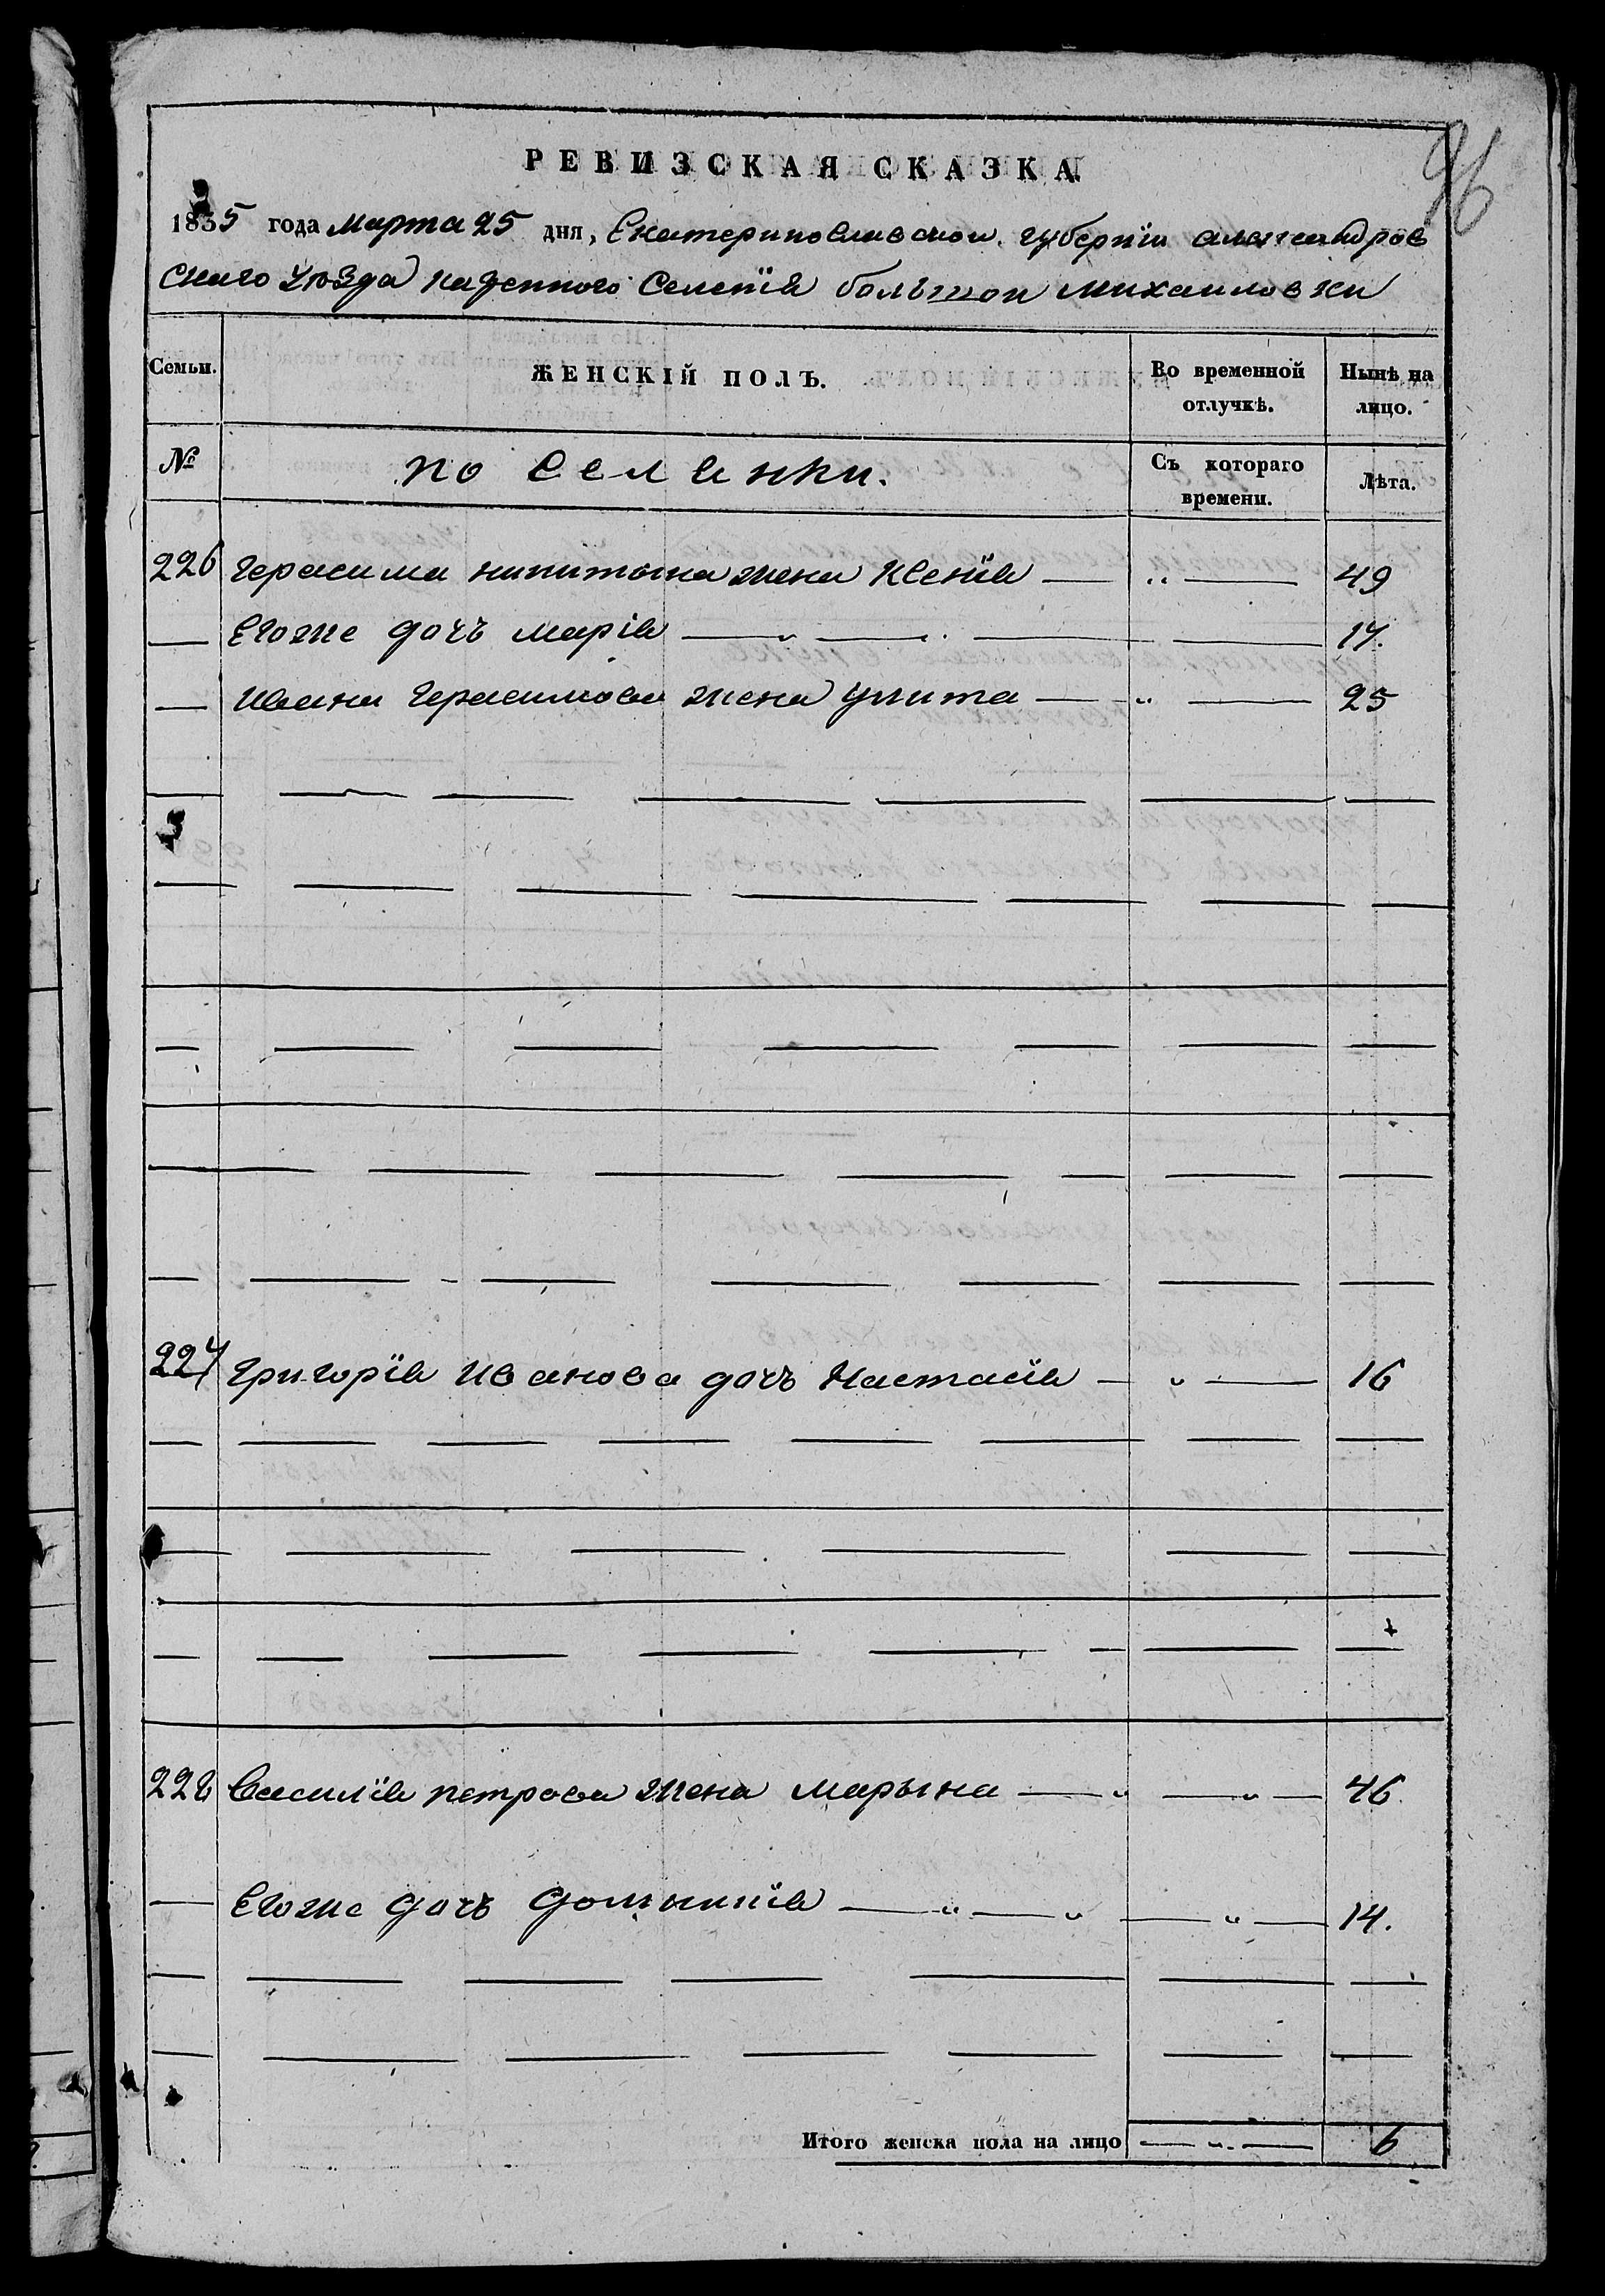 96
РЕВИЗСКАЯ СКАЗКА.
1835 года марта 25 дня, Екатеринославскои губернїи александров
скаго уѣзда казенного селенїя большои михаиловки
Семьи. ЖЕНСКІЙ ПОЛЪ. Во временной отлучкѣ. Нынѣ на лицо.
№ поселянки. Съ котораго времени. Лѣта.
226 Герасима никитина жена Ксенїя — „ — 49
— Егоже дочъ марїя — „ — „ — 17.
— Ивана Герасимова жена улита — „ — 25
227 Григорїя Иванова дочъ Настасїя — „ — 16
228 Василїя петрова жена марына — „ — „ — 46
— Егоже дочъ домникїя — „ — „ — „ — 14.
Итого женска пола на лицо — „ — 6